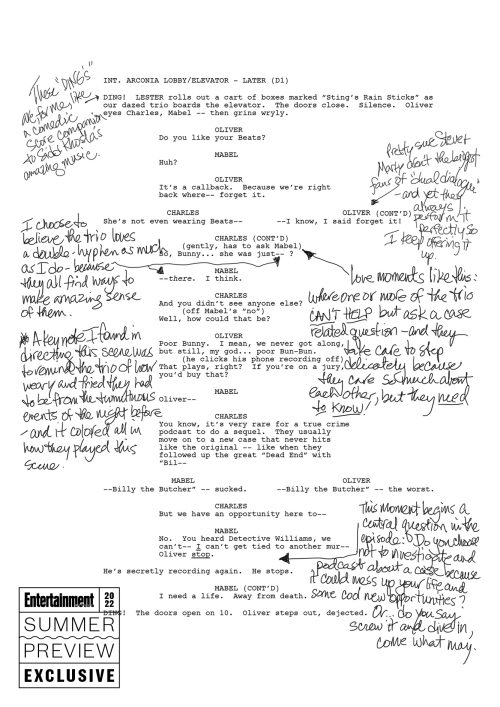 These "DING'S"
are for me, like
a comedic
score companion
to Sidd Khosla's
amazing music.
INT. ARCONIA LOBBY/ELEVATOR - LATER (D1)
DING! LESTER rolls out a cart of boxes marked "Sting's Rain Sticks" as
our dazed trio boards the elevator. The doors close. Silence. Oliver
eyes Charles, Mabel -- then grins wryly.
OLIVER
Do you like your Beats?
MABEL
Huh?
OLIVER
It's a callback. Because we're right
back where-- forget it.
Pretty sure Steve &
Marty aren't the largest
fans of "dual dialogue"
- and yet they
always
perform it
perfectly so
I keep offering it
up.
CHARLES
She's not even wearing Beats--
OLIVER (CONT'D)
--I know, I said forget it!
I choose to
believe the trio loves
a double-hyphen as much
as I do - because
they all find ways to
make amazing sense
of them.
CHARLES (CONT'D)
(gently, has to ask Mabel)
So, Bunny... she was just-- ?
MABEL
--there. I think.
CHARLES
And you didn't see anyone else?
(off Mabel's "no")
Well, how could that be?
love moments like this:
where one or more of the trio
CAN'T HELP but ask a case
related question - and they
take care to step
delicately because
they care so much about
each other, but they need
to know!
* A key note I found in
directing this scene was
to remind the trio of how
weary and fried they had
to be from the tumultuous
events of the night before
- and it colored all in
how they played this
scene.
OLIVER
Poor Bunny. I mean, we never got along,
but still, my god... poor Bun-Bun.
(he clicks his phone recording off)
That plays, right? If you're on a jury,
you'd buy that?
MABEL
Oliver--
CHARLES
You know, it's very rare for a true crime
podcast to do a sequel. They usually
move on to a new case that never hits
like the original -- like when they
followed up the great "Dead End" with
"Bil--
MABEL
--Billy the Butcher" -- sucked.
OLIVER
--Billy the Butcher" -- the worst.
CHARLES
But we have an opportunity here to--
MABEL
No. You heard Detective Williams, we
can't-- I can't get tied to another mur--
Oliver stop.
He's secretly recording again. He stops.
MABEL (CONT'D)
I need a life. Away from death.
DING! The doors open on 10. Oliver steps out, dejected.
This moment begins a
central question in the
episode: Do you choose
not to investigate and
podcast about a case because
it could mess up your life and
some cool new opportunities?
Or... do you say
screw it and dive in,
come what may.
Entertainment 2022
SUMMER
PREVIEW
EXCLUSIVE